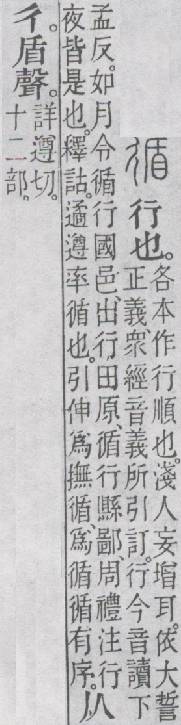 循 行也。各本作行順也。淺人妄增耳。依大誓
正義、衆經音義所引訂。行今音讀下
孟反。如月令循行國邑、出行田原、循行縣鄙、周禮注行
夜皆是也。釋詁。遹遵率循也。引伸爲撫循、爲循循有序。从
彳。盾聲。詳遵切。
十二部。